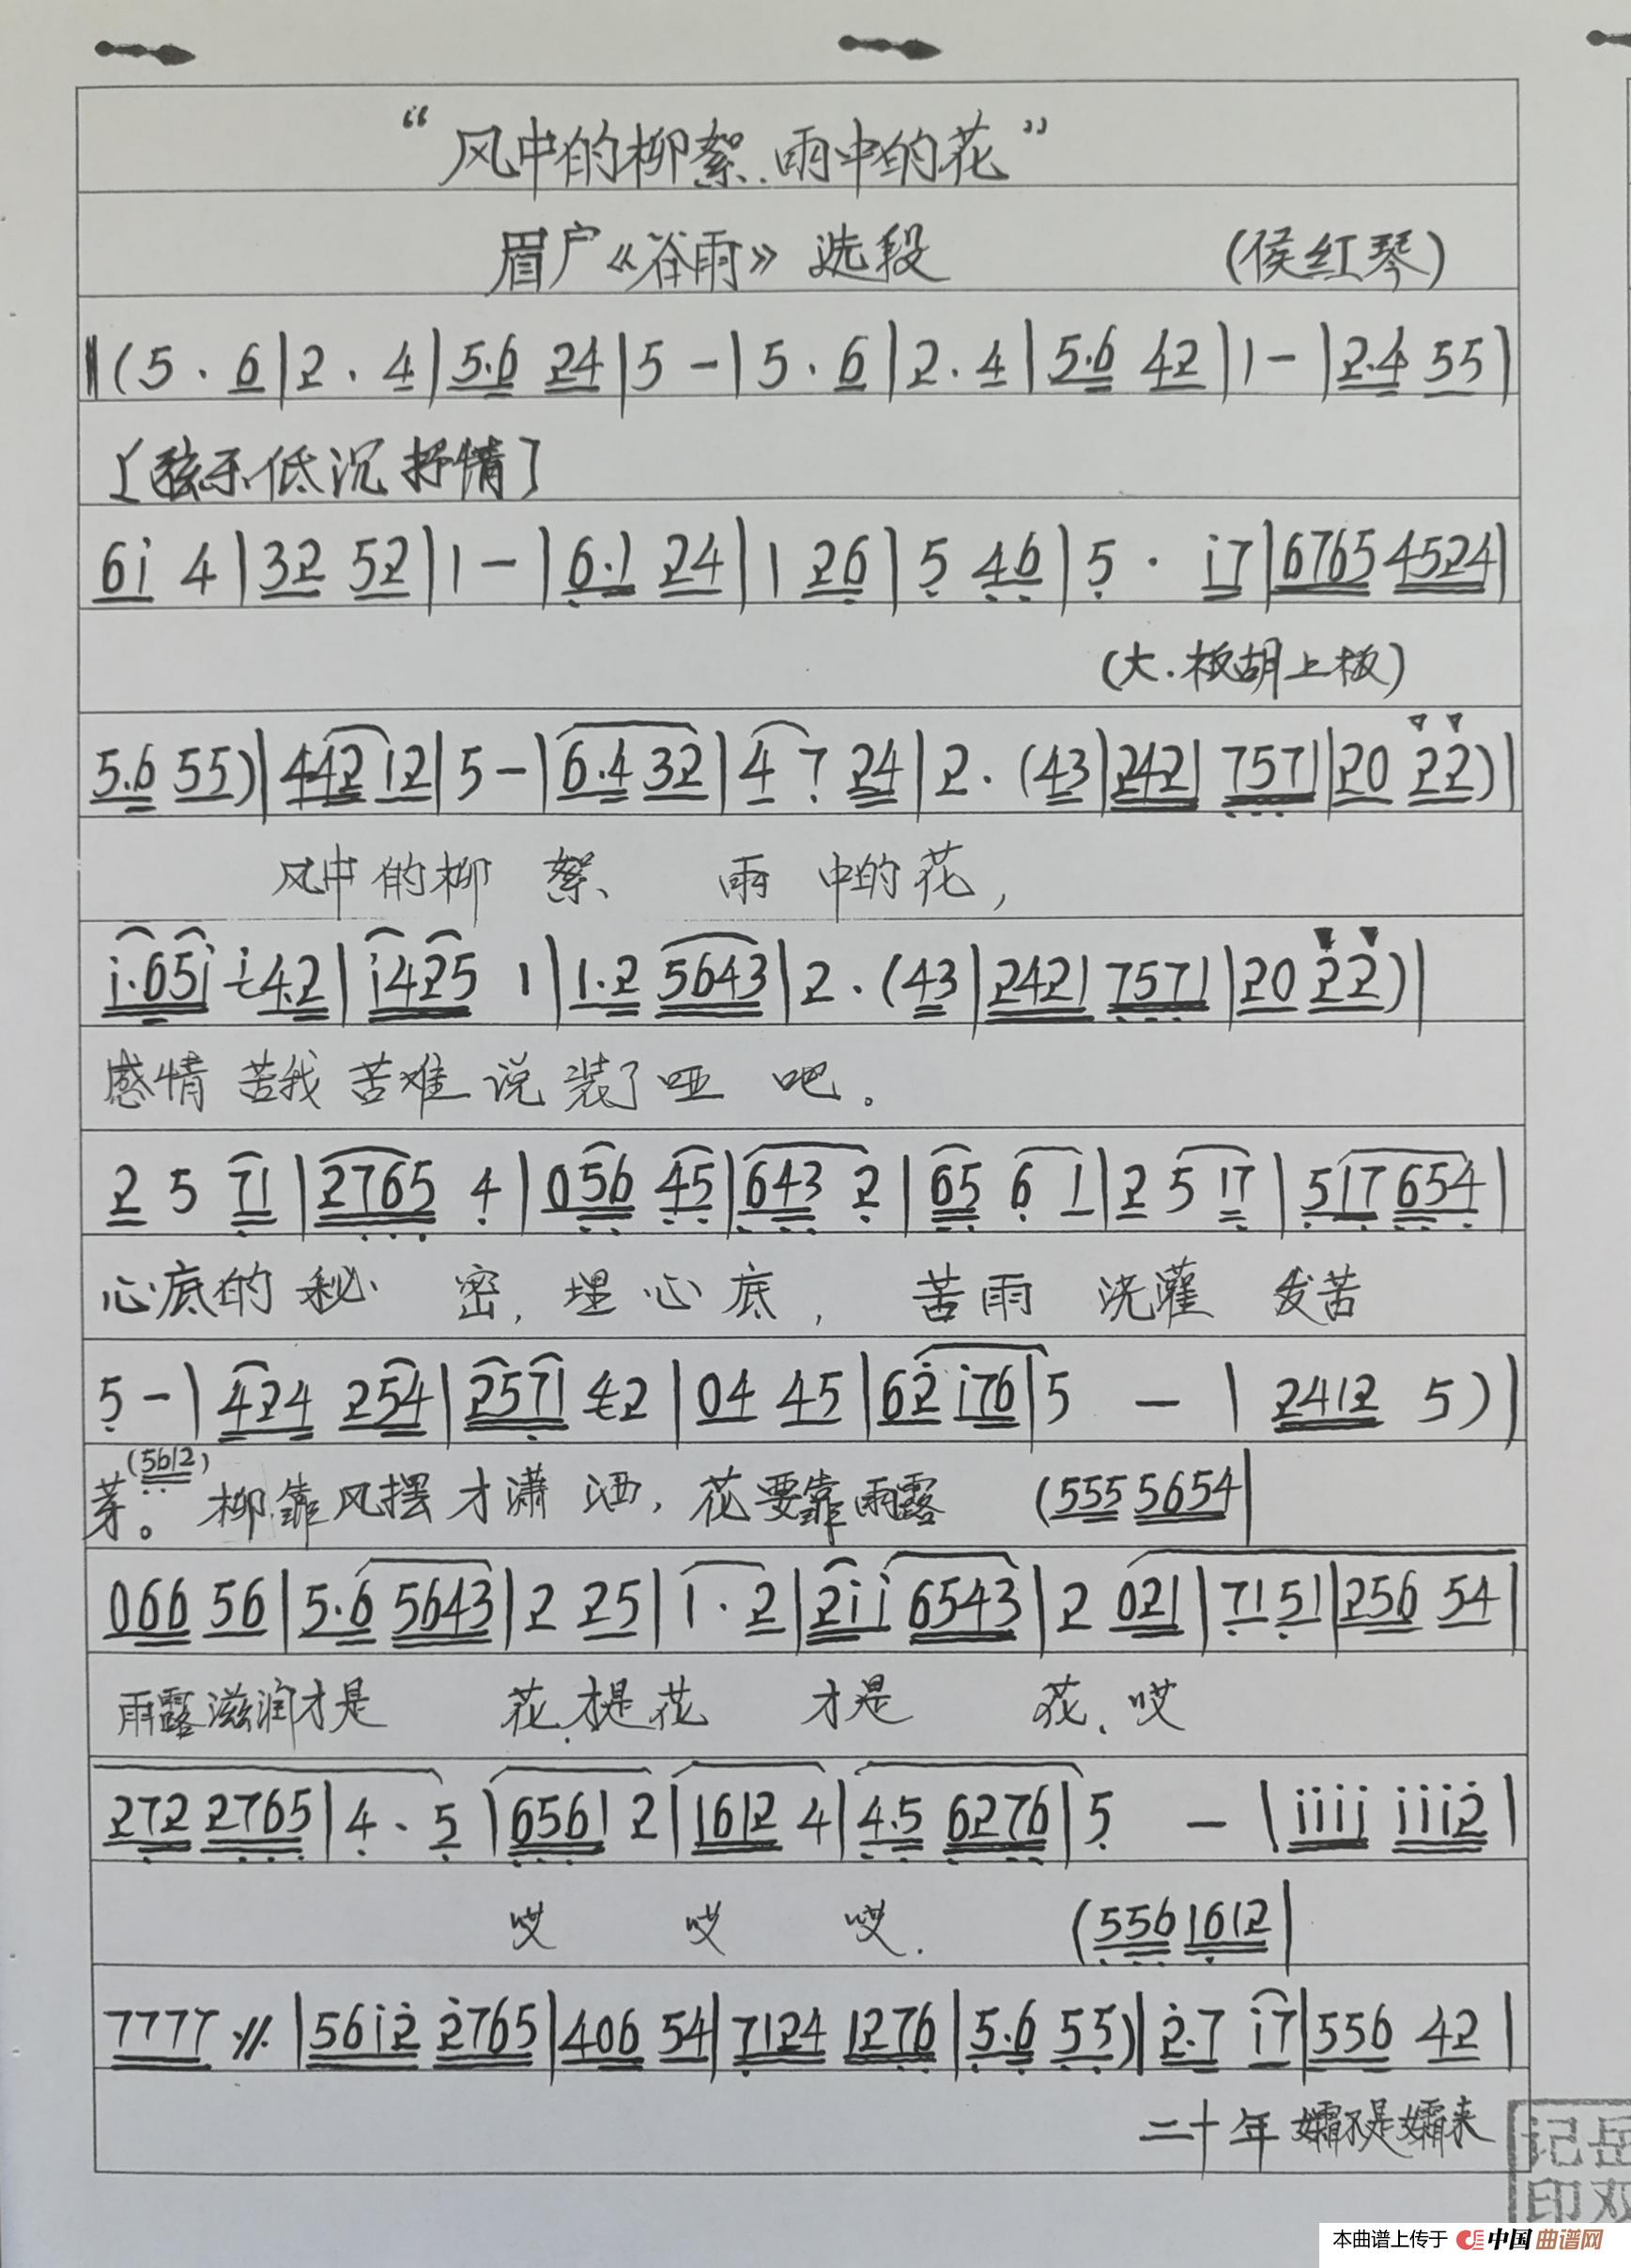 “风中的柳絮.雨中的花”
眉户《谷雨》选段 (侯红琴)
‖(5 · 6|2 · 4|5.6 24|5 -|5 · 6|2 · 4|5.6 42|1 -|2.4 55|
[弦乐低沉抒情]
6i 4|32 52|1 -|6.1 24|1 26|5 46|5 · i7|6765 4524|
(大.板胡上板)
5.6 55)|442 12|5 -|6.4 32|4 7 24|2 · (43|2421 7571|20 22)|
风中的柳絮、雨中的花,
i.65i i4.2|i425 1|1.2 5643|2 · (43|2421 7571|20 22)|
感情苦我苦难说装了哑吧。
2 5 71|2765 4|056 45|643 2|65 6 1|2 5 17|517 654|
心底的秘密,埋心底,苦雨浇灌发苦
5 -|424 254|2571 42|04 45|62 i76|5 -|2412 5)|
(5612)
芽。柳靠风摆才潇洒,花要靠雨露 (555 5654|
066 56|5.6 5643|2 25|1 · 2|2ii 6543|2 021|71 51|256 54|
雨露滋润才是花.才是花才是花、哎
272 2765|4 · 5|6561 2|1612 4|4.5 6276|5 -|iiii iii2|
哎哎哎. (556 1612|
7777 ·//.|56i2 2765|406 54|7124 1276|5.6 55)|2.7 i7|556 42|
二十年孀不是孀来
记岳
印双
本曲谱上传于 中国曲谱网